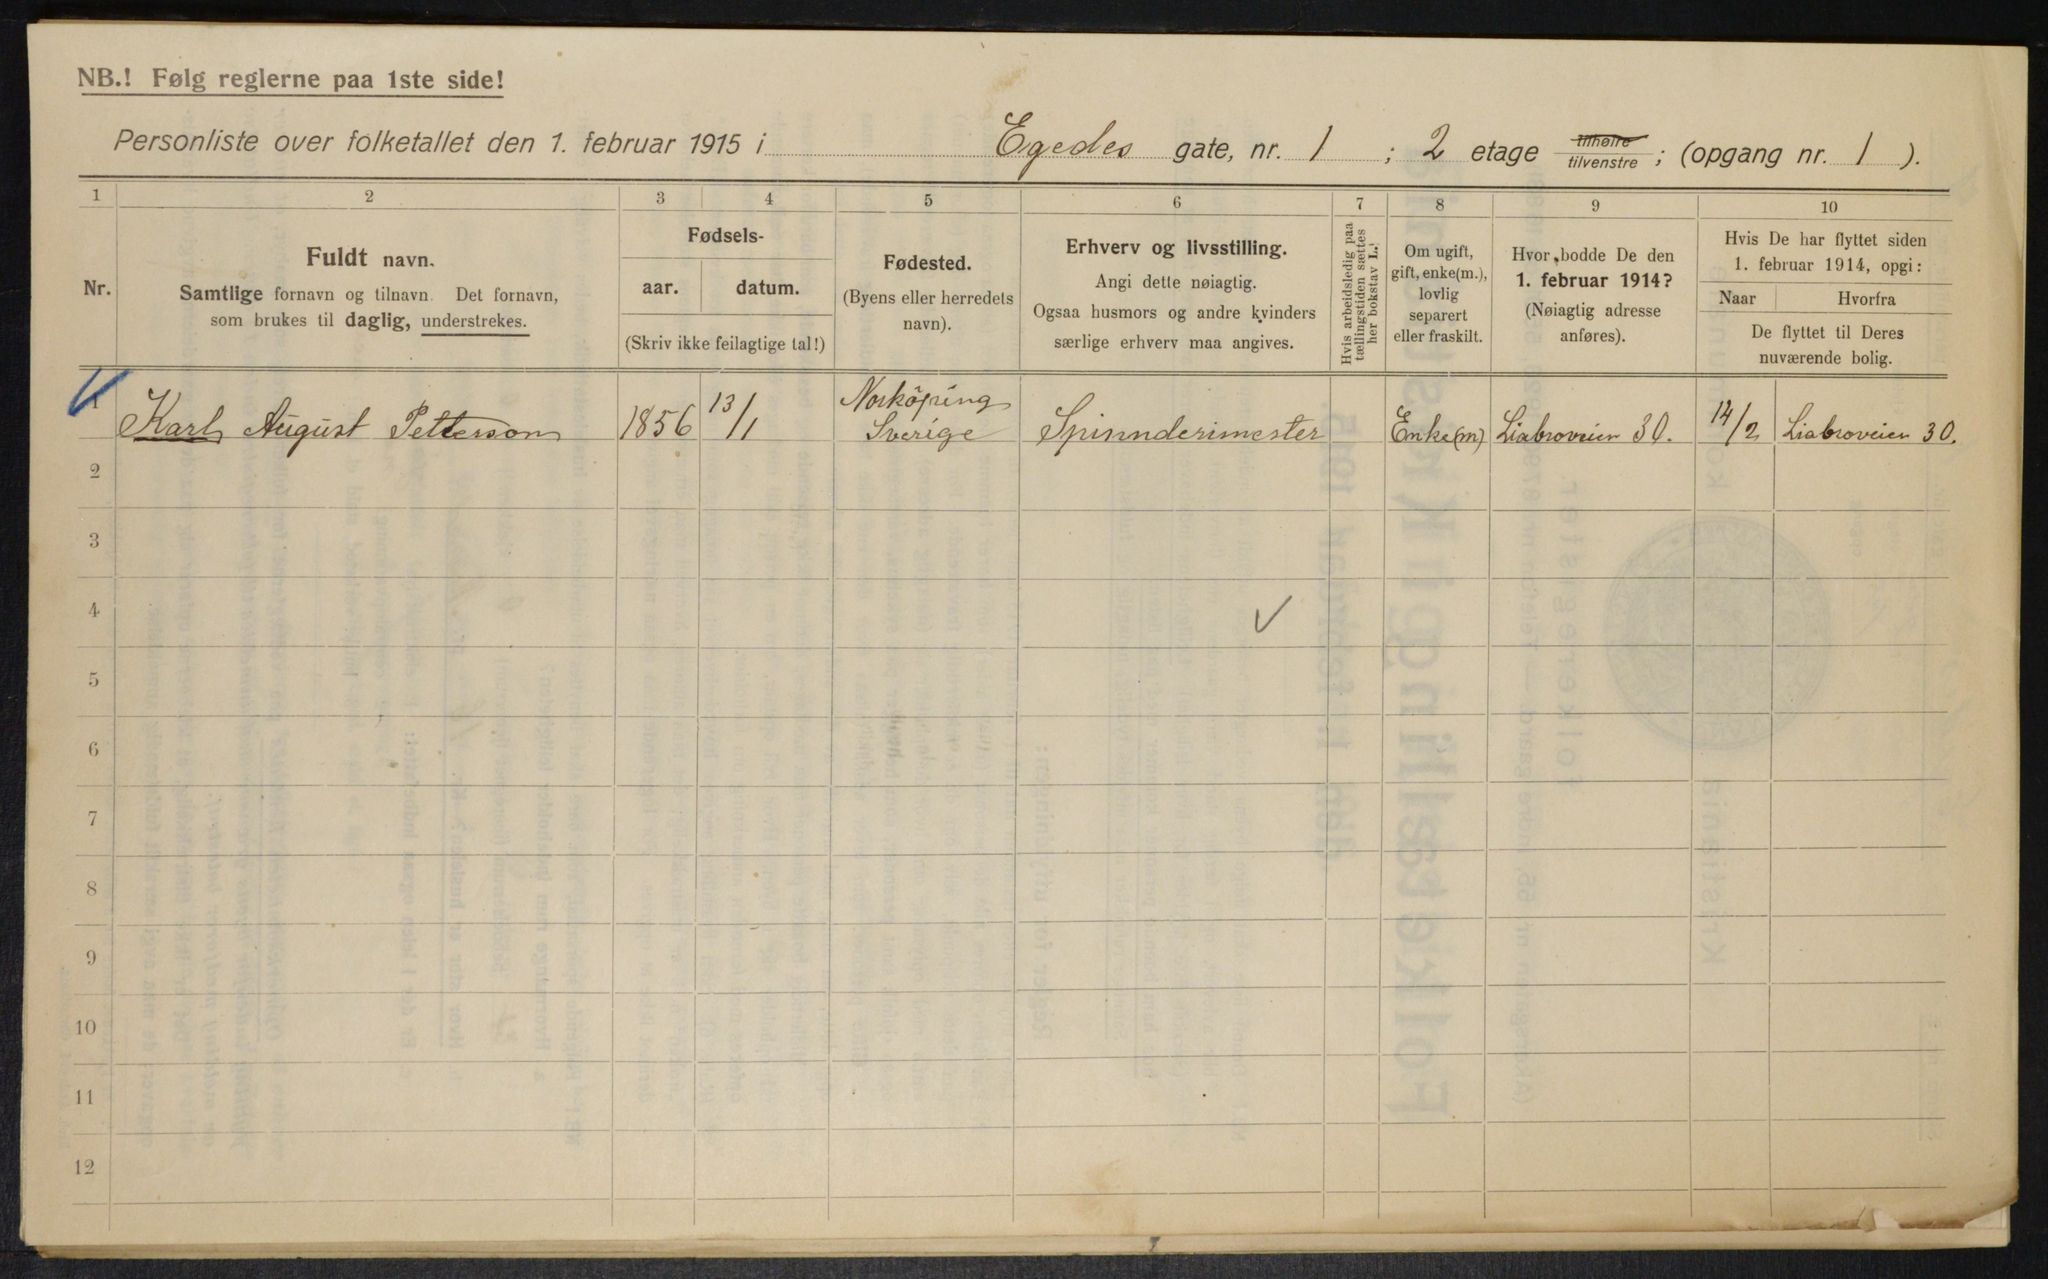 NB.! Følg reglerne paa 1ste side!
Personliste over folketallet den 1. februar 1915 i Egedes gate, nr. 1 ; 2 etage tilhøire/tilvenstre ; (opgang nr. 1 ).
1 2 3 4 5 6 7 8 9 10
Nr.
Fuldt navn.
Samtlige fornavn og tilnavn. Det fornavn,
som brukes til daglig, understrekes.
Fødsels-
aar. datum.
(Skriv ikke feilagtige tal!)
Fødested.
(Byens eller herredets
navn).
Erhverv og livsstilling.
Angi dette nøiagtig.
Ogsaa husmors og andre kvinders
særlige erhverv maa angives.
Hvis arbeidsledig paa
tællingstiden sættes
her bokstav L.
Om ugift,
gift, enke(m.),
lovlig
separert
eller fraskilt.
Hvor bodde De den
1. februar 1914?
(Nøiagtig adresse
anføres).
Hvis De har flyttet siden
1. februar 1914, opgi:
Naar Hvorfra
De flyttet til Deres
nuværende bolig.
1 Karl August Petterson 1856 13/1 Norköping Sverige Spinnderimester Enke(m) Liabroveien 30. 14/2 Liabroveien 30.
2
3
4
5
6
7
8
9
10
11
12